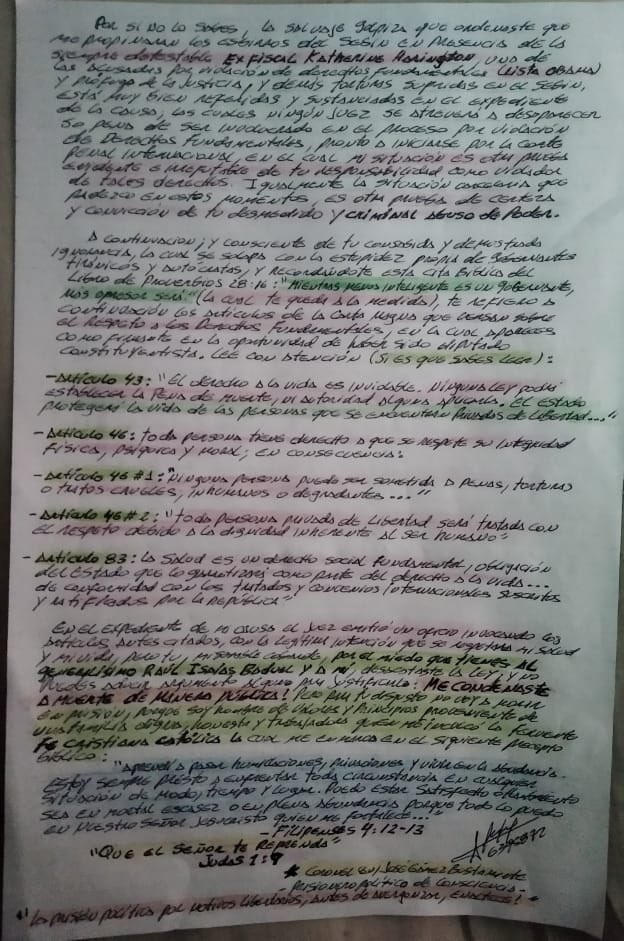 Por si no lo sabes, la salvaje golpiza que ordenaste que
me propinaran los esbirros del Sebin en presencia de la
siempre detestable ex fiscal Katherine Harington, una de
las acusadas por violación de derechos fundamentales (Lista Obama)
y prófuga de la justicia, y demás torturas sufridas en el Sebin,
está muy bien referidas y sustanciadas en el expediente
de la causa, las cuales ningún juez se atreverá a desaparecer
so pena de ser involucrado en el proceso por violación
de Derechos Fundamentales, pronto a iniciarse por la Corte
Penal Internacional, en el cual mi situación es otra prueba
evidente e irrefutable de tu responsabilidad como violador
de tales derechos. Igualmente la situación carcelaria que
padezco en estos momentos, es otra prueba de certeza
y convicción de tu desmedido y criminal abuso de poder.
A continuación, y consciente de tu consabida y demostrada
ignorancia, la cual se solapa con la estupidez propia de gobernantes
tiránicos y autócratas, y recordándote esta cita bíblica del
Libro de Proverbios 28:16: "Mientras menos inteligente es un gobernante,
más opresor será." (la cual te queda a la medida), te refiero a
continuación los artículos de la Carta Magna que versan sobre
el respeto a los Derechos Fundamentales, en la cual apareces
como firmante en la oportunidad de haber sido diputado
constituyentista. Lee con atención (si es que sabes leer):
- Artículo 43: "El derecho a la vida es inviolable. Ninguna ley podrá
establecer la pena de muerte, ni autoridad alguna aplicarla. El Estado
protegerá la vida de las personas que se encuentren privadas de libertad..."
- Artículo 46: toda persona tiene derecho a que se respete su integridad
física, psíquica y moral; en consecuencia:
- Artículo 46 #1: "Ninguna persona puede ser sometida a penas, torturas
o tratos crueles, inhumanos o degradantes..."
- Artículo 46 #2: "toda persona privada de libertad será tratada con
el respeto debido a la dignidad inherente al ser humano"
- Artículo 83: La salud es un derecho social fundamental, obligación
del Estado que lo garantizará como parte del derecho a la vida...
de conformidad con los tratados y convenios internacionales suscritos
y ratificados por la República"
En el expediente de mi causa el juez emitió un oficio invocando los
artículos antes citados, con la legítima intención que se respetara mi salud
y mi vida, pero tu miserable cobarde, por el miedo que tienes al
Generalísimo Raúl Isaías Baduel y a mí, descartaste la ley, y no
puedes aducir argumento alguno para justificarlo: ¡Me condenaste
a muerte de manera pública! Pero para tu disgusto no voy a morir
en prisión, porque soy hombre de valores y principios proveniente de
una familia digna, honesta y trabajadora quien me inculcó la ferviente
fe cristiana católica la cual me enmarca en el siguiente precepto
bíblico:
"Aprendí a pasar humillaciones, privaciones y vivir en la abundancia.
Estoy siempre presto a enfrentar toda circunstancia en cualquier
situación de modo, tiempo y lugar. Puedo estar satisfecho o hambriento
sea en mortal escasez o en plena abundancia porque todo lo puedo
en nuestro Señor Jesucristo quien me fortalece..."
- Filipenses 4:12-13
"Que el Señor te reprenda"
Judas 1:9
* Coronel (Ej) José Gámez Bustamante
- Prisionero político de consciencia -
"¡La prisión política por motivos libertarios, antes de avergonzar, enaltece!"